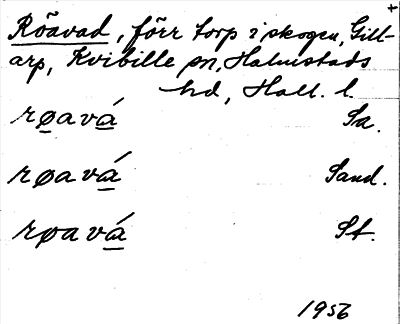 Röavad, förr torp i skogen, Gill-
arp, Kvibille sn, Halmstads
hd, Hall. l.
røavá Sa.
røavá Sand.
røavá St.
1956